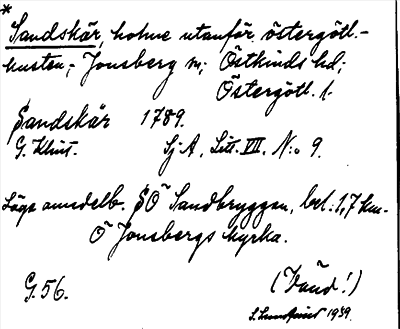 *
Sandskär, holme utanför östergötl.-
kusten,- Jonsberg sn; Östkinds hd;
Östergötl. l.
Sandskär 1789.
G. Klint. Sj A, Litt. VII. No 9.
Läge omedelb. SO Sandbryggan, bel. 1,7 km.
O Jonsbergs kyrka.
G. 56. (Vänd!)
S. Lundquist 1939.